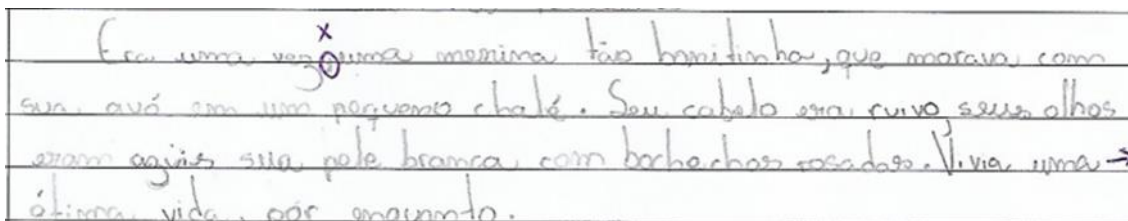 Era uma vez, uma menina tão bonitinha, que morava com
sua avó em um pequeno chalé. Seu cabelo era ruivo, seus olhos
eram azuis sua pele branca, com bochechas rosadas. Vivia uma →
ótima vida, por enquanto.